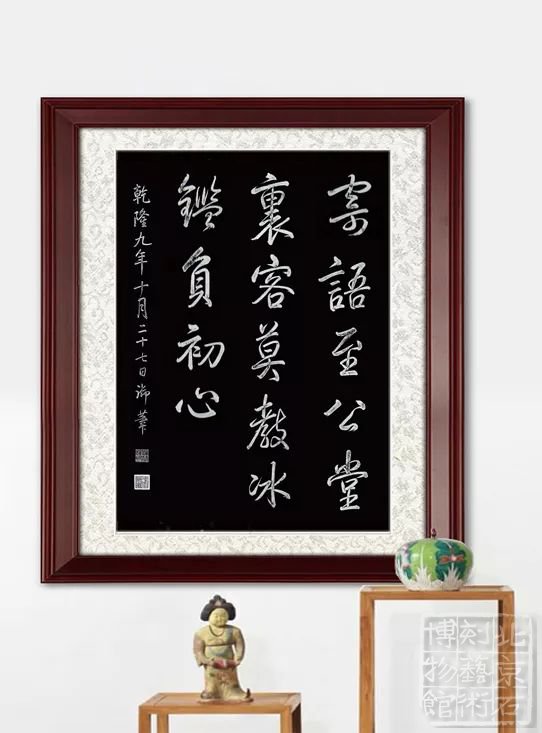 寄語至公堂
裏客莫教冰
鑑負初心
乾隆九年十月二十七日御筆
北京石
刻藝術
博物館